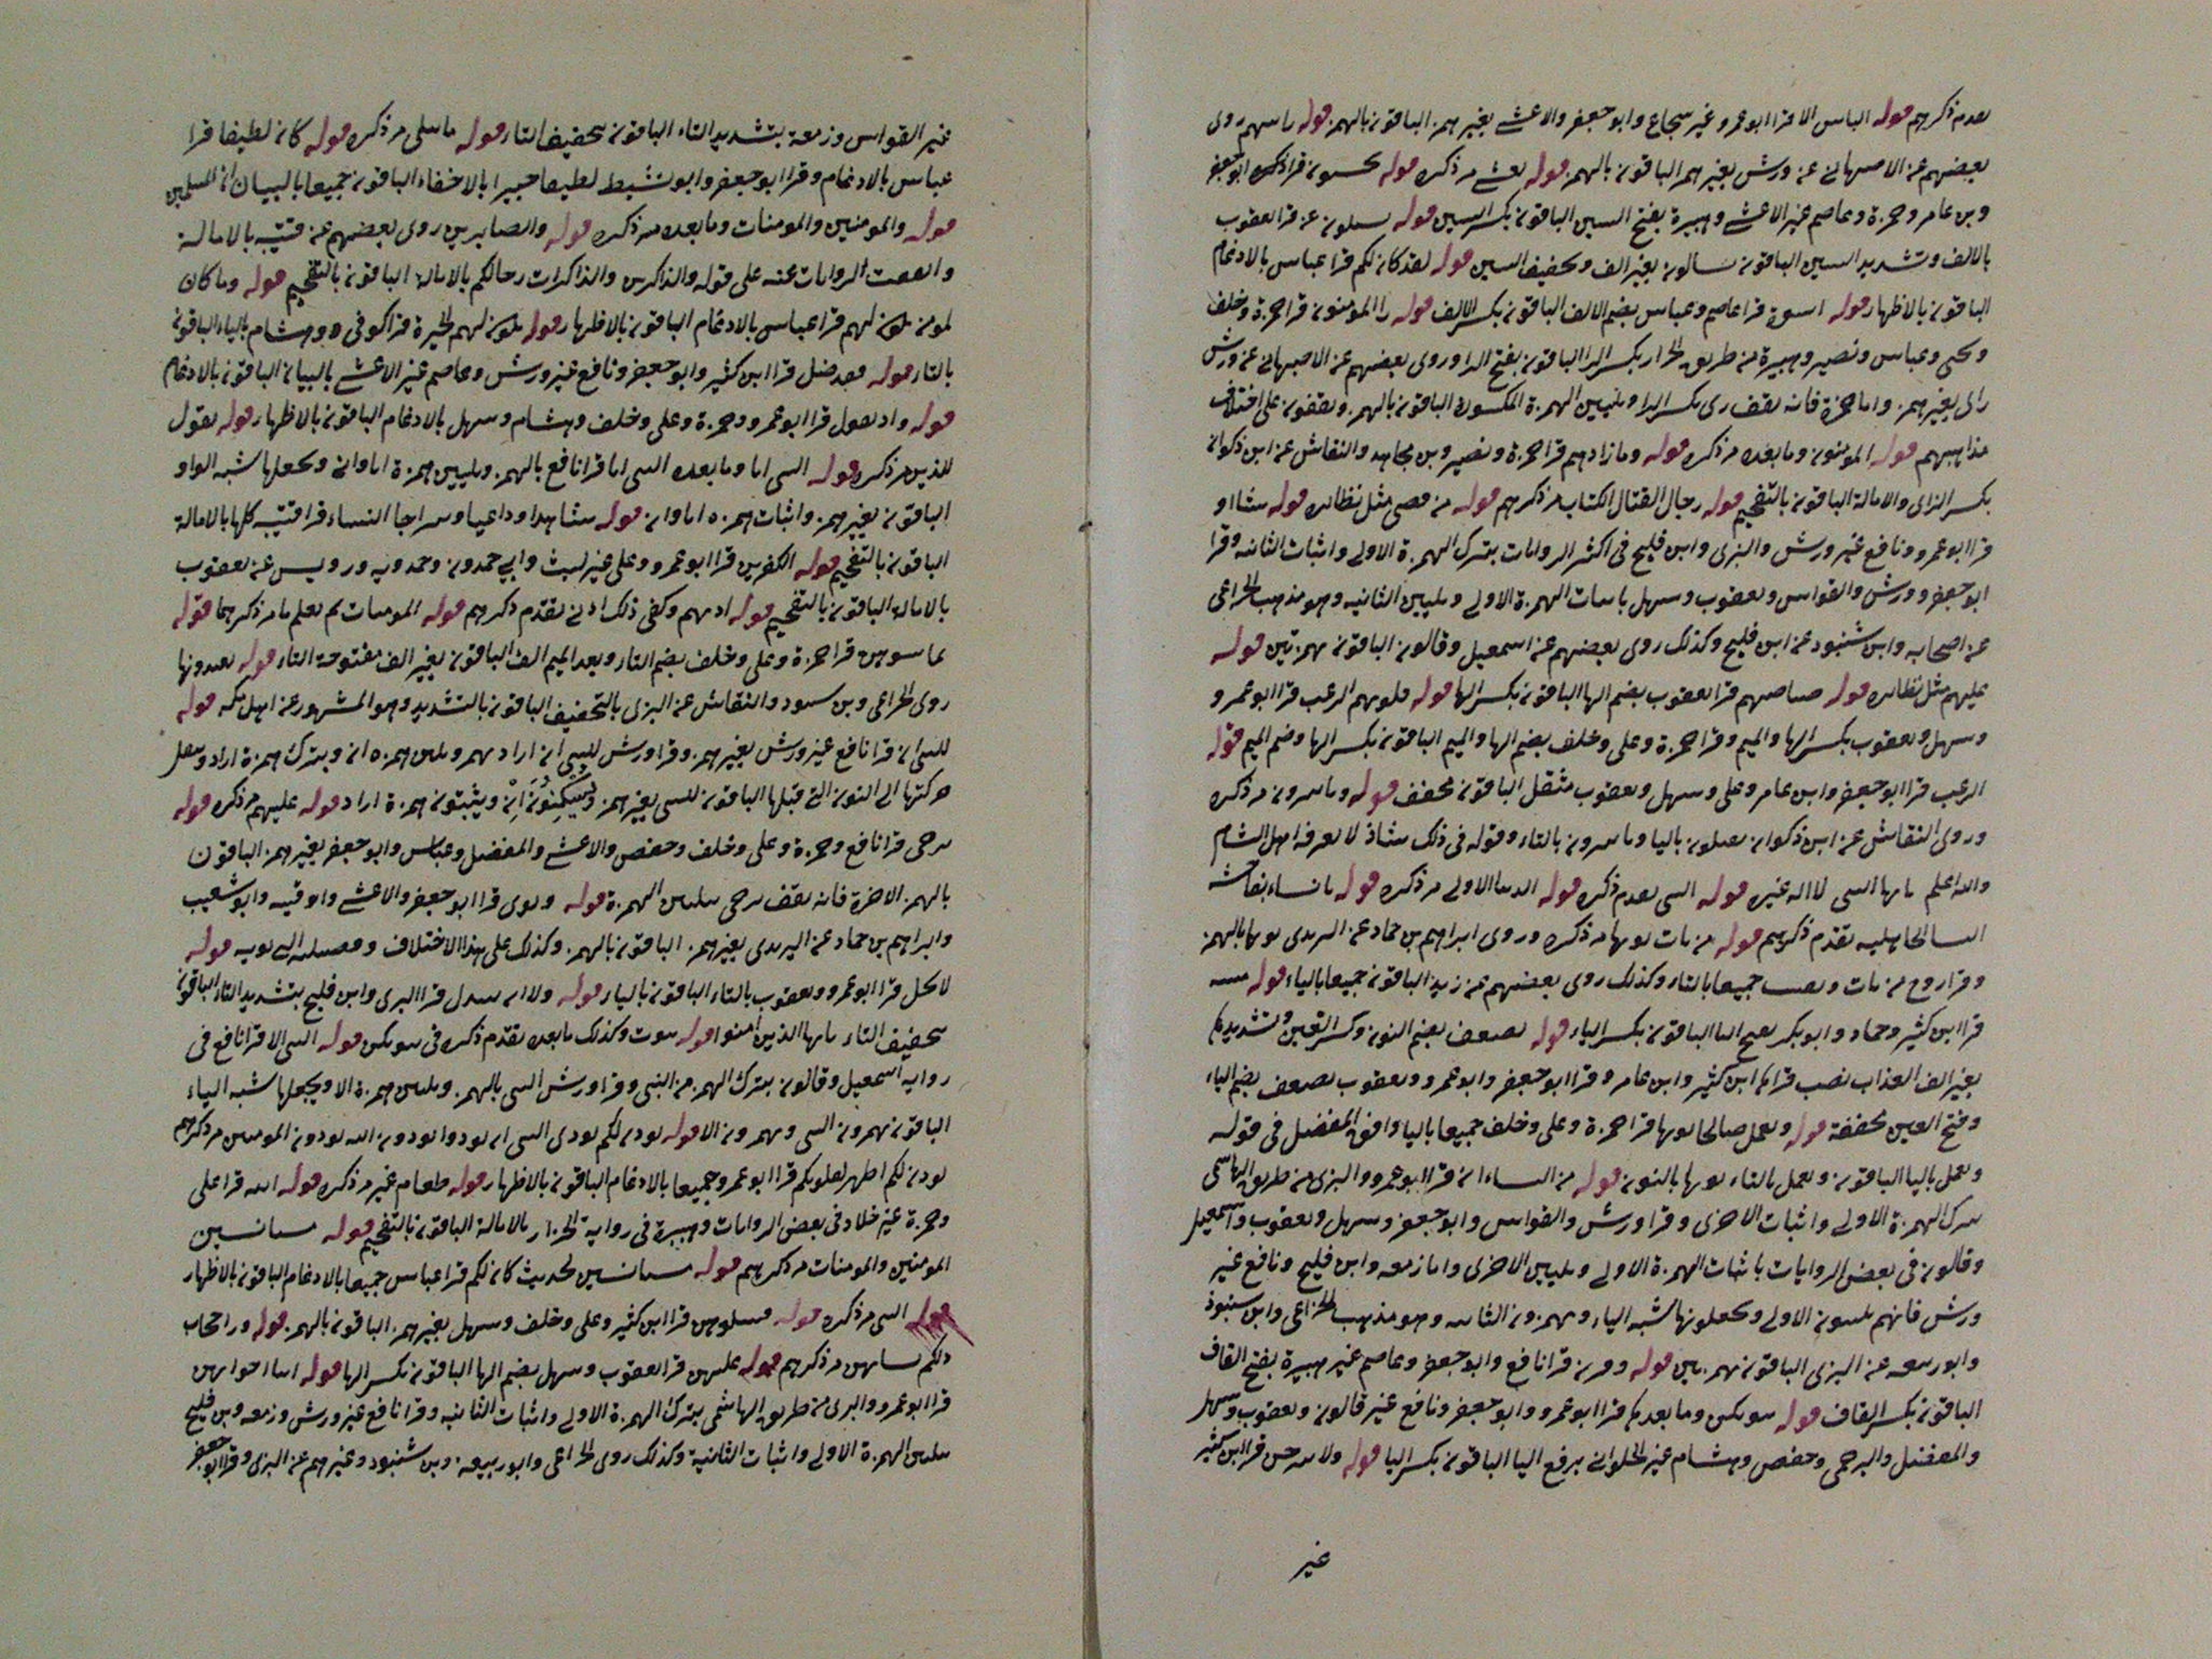 ىعدم ذكرهم قوله الباس الا قرا ابو عمرو غير شجاع وابو جعفر والاعشى بغير همز الباقون بالهمز قوله باسهم روى
بعضهم عن الاصبهاني عن ورش بغير همز الباقون بالهمز قوله يغشى مر ذكره قوله يحسبون قرا ابو جعفر
وبن عامر وحمزة وعاصم غير الاعشى وهبيرة بفتح السين الباقون بكسر السين قوله يسلون عن قرا يعقوب
بالالف وتشديد السين الباقون يسالون بغير الف وتخفيف السين قوله لقد كان لكم قرا عباس بالادغام
الباقون بالاظهار قوله اسوة قرا عاصم وعباس بضم الالف الباقون بكسر الالف قوله را المومنون قرا حمزة وخلف
ويحيى وعباس ونصير وهبيرة من طريق الخراز بكسر الرا الباقون بفتح الرا وروى بعضهم عن الاصبهاني عن ورش
راى بغير همز واما حمزة فانه يقف رى بكسر الرا وتليين الهمزة المكسورة الباقون بالهمز ويقفون على اختلاف
مذاهبهم قوله المومنون وما بعده مر ذكره قوله وما زادهم قرا حمزة ونصير وبن مجاهد والنقاش عن ابن ذكوان
بكسر الزاى والامالة الباقون بالتفخيم قوله رجال القتال الكتاب مر ذكرهم قوله من قضى مثل نظائره قوله شا او
قرا ابو عمرو ونافع غير ورش والبزى وابن فليح فى اكثر الروايات بترك الهمزة الاولى واثبات الثانيه وقرا
ابو جعفر وورش والقواس ويعقوب وسهل باثبات الهمزة الاولى وتليين الثانيه وهو مذهب الخزاعى
عن اصحابه وابن شنبود عن ابن فليح وكذلك روى بعضهم عن اسمعيل وقالون الباقون بهمزتين قوله
عليهم مثل نظائره قوله صياصيهم قرا يعقوب بضم الها الباقون بكسر الها قوله قلوبهم الرعب قرا ابو عمرو
وسهل ويعقوب بكسر الها والميم وقرا حمزة وعلى وخلف بضم الها والميم الباقون بكسر الها وضم الميم قوله
الرعب قرا ابو جعفر وابن عامر وعلى وسهل ويعقوب مثقل الباقون مخفف قوله وتاسرون مر ذكره
وروى النقاش عن ابن ذكوان يعملون باليا وتاسرون بالتاء وقوله فى ذلك شاذ لا يعرفه اهل الشام
والله اعلم يايها النبى لا اله غيره قوله النبى تقدم ذكره قوله الدنيا الاولى مر ذكره قوله يانساء بفاحشه
النسا الجاهليه تقدم ذكرهم قوله من يات نوتها مر ذكره وروى ابراهيم بن حماد عن اليزيدى نوتها بالهمز
وقرا روح من يات ويقنت جميعا بالتاء وكذلك روى بعضهم عن زيد الباقون جميعا بالياء قوله مبينه
قرا ابن كثير وحماد وابو بكر بفتح اليا الباقون بكسر الياء قوله يضعف بضم النون وكسر العين وتشديدها
بغير الف العذاب نصب قراها ابن كثير وابن عامر وقرا ابو جعفر وابو عمرو ويعقوب يضعف بضم الياء
وفتح العين مخففة قوله ويعمل صالحا نوتها قرا حمزة وعلى وخلف جميعا باليا وافق المفضل فى قوله
ويعمل باليا الباقون وتعمل بالتاء نوتها بالنون قوله من النساء ان قرا ابو عمرو والبزى من طريق الهاشمى
بترك الهمزة الاولى واثبات الاخرى وقرا ورش والقواس وابو جعفر وسهل ويعقوب واسمعيل
وقالون فى بعض الروايات باثبات الهمزة الاولى وتليين الاخرى واما زمعه وابن فليح ونافع غير
ورش فانهم يلينون الاولى ويجعلونها شبه الياء ويهمزون الثانيه وهو مذهب الخزاعى وابن شنبوذ
وابو ربيعه عن البزى الباقون بهمزتين قوله وقرن قرا نافع وابو جعفر وعاصم غير هبيرة بفتح القاف
الباقون بكسر القاف قوله بيوتكن وما بعدها قرا ابو عمرو وابو جعفر ونافع غير قالون ويعقوب وسهل
والمفضل والبرجمى وحفص وهشام غير الحلوانى برفع اليا الباقون بكسر اليا قوله ولا تبرجن قرا ابن كثير
غير
غير القواس وزمعة بتشديد التاء الباقون بتخفيف التاء قوله ما يتلى مر ذكره قوله كان لطيفا قرا
عباس بالادغام وقرا ابو جعفر وابو نشيط لطيفا خبيرا بالاخفاء الباقون جميعا بالبيان ان المسلمين
قوله والمومنين والمومنات وما بعده مر ذكره قوله والصابرين روى بعضهم عن قتيبه بالامالة
واتفقت الروايات عنه على قوله والذاكرين والذاكرات رجالكم بالامالة الباقون بالتفخيم قوله وما كان
لمومن يكون لهم قرا عباس بالادغام الباقون بالاظهار قوله يكون لهم الخيرة قرا كوفى وهشام بالياء الباقون
بالتاء قوله فقد ضل قرا ابن كثير وابو جعفر ونافع غير ورش وعاصم غير الاعشى بالبيان الباقون بالادغام
قوله واذ تقول قرا ابو عمرو وحمزة وعلى وخلف وهشام وسهل بالادغام الباقون بالاظهار قوله تقول
للذين مر ذكره قوله النبى انا وما بعده النبى انا قرا نافع بالهمز وتليين همزة انا وان ويجعلها شبه الواو
الباقون بغير همز واثبات همزه انا وان قوله شاهدا وداعيا وسراجا النساء قرا قتيبه كلها بالامالة
الباقون بالتفخيم قوله الكفرين قرا ابو عمرو وعلى غير ليث وابي حمدون وحمدويه ورويس عن يعقوب
بالامالة الباقون بالتفخيم قوله اذيهم وكفى ذلك ادنى تقدم ذكرهم قوله المومنات ثم يعلم ما مر ذكرهما قوله
تماسوهن قرا حمزة وعلى وخلف بضم التاء وبعد الميم الف الباقون بغير الف مفتوحة التاء قوله تعتدونها
روى الخزاعى وبن سعود والنقاش عن البزى بالتخفيف الباقون بالتشديد وهو المشهور عن اهل مكه قوله
للنبى ان قرا نافع غير ورش بغير همز وقرا ورش للنبى ان اراد بهمز وتليين همزه ان وبترك همزة اراد وينقل
حركتها الى النون التى قبلها الباقون للنبى بغير همز ويسكنون ان ويثبتون همزة اراد قوله عليهم مر ذكره قوله
ترجى قرا نافع وحمزة وعلى وخلف وحفص والاعشى والمفضل وعباس وابو جعفر بغير همز الباقون
بالهمز الا حمزة فانه يقف ترجى بتليين الهمزة قوله وتوى قرا ابو جعفر والاعشى واوقيه وابو شعيب
وابراهيم بن حماد عن اليزيدى بغير همز الباقون بالهمز وكذلك على هذا الاختلاف وفصيلته التى تويه قوله
لا يحل قرا ابو عمرو ويعقوب بالتاء الباقون بالياء قوله ولا ان تبدل قرا البزى وابن فليح بتشديد التاء الباقون
بتخفيف التاء يايها الذين امنوا قوله بيوت وكذلك ما بعده تقدم ذكره فى بيوتكن قوله النبى الا قرا نافع فى
رواية اسمعيل وقالون بترك الهمز من النبى وقرا ورش النبى بالهمز وتليين همزة الا ويجعلها شبه الياء
الباقون يهمزون النبى ويهمزون الا قوله يوذن لكم يوذى النبى ان توذوا يوذون الله يوذون المومنين مر ذكرهم
يوذن لكم اطهر لقلوبكم قرا ابو عمرو جميعا بالادغام الباقون بالاظهار قوله طعام غير مر ذكره قوله انيه قرا على
وحمزة غير خلاد فى بعض الروايات وهبيرة فى رواية الخزاز بالامالة الباقون بالتفخيم قوله مستانسين
المومنين والمومنات مر ذكرهم قوله مستانسين لحديث كان لكم قرا عباس جميعا بالادغام الباقون بالاظهار
قوله النبى مر ذكره قوله فسلوهن قرا ابن كثير وعلى وخلف وسهل بغير همز الباقون بالهمز قوله ورا حجاب
ذلكم نسائهن مر ذكرهم قوله عليهن قرا يعقوب وسهل بضم الها الباقون بكسر الها قوله ابنا اخواتهن
قرا ابو عمرو والبزى من طريق الهاشمى بترك الهمزة الاولى واثبات الثانيه وقرا نافع غير ورش وزمعه وبن فليح
بتليين الهمزة الاولى واثبات الثانية وكذلك روى الخزاعى وابو ربيعه وبن شنبود وغيرهم عن البزى وقرا ابو جعفر